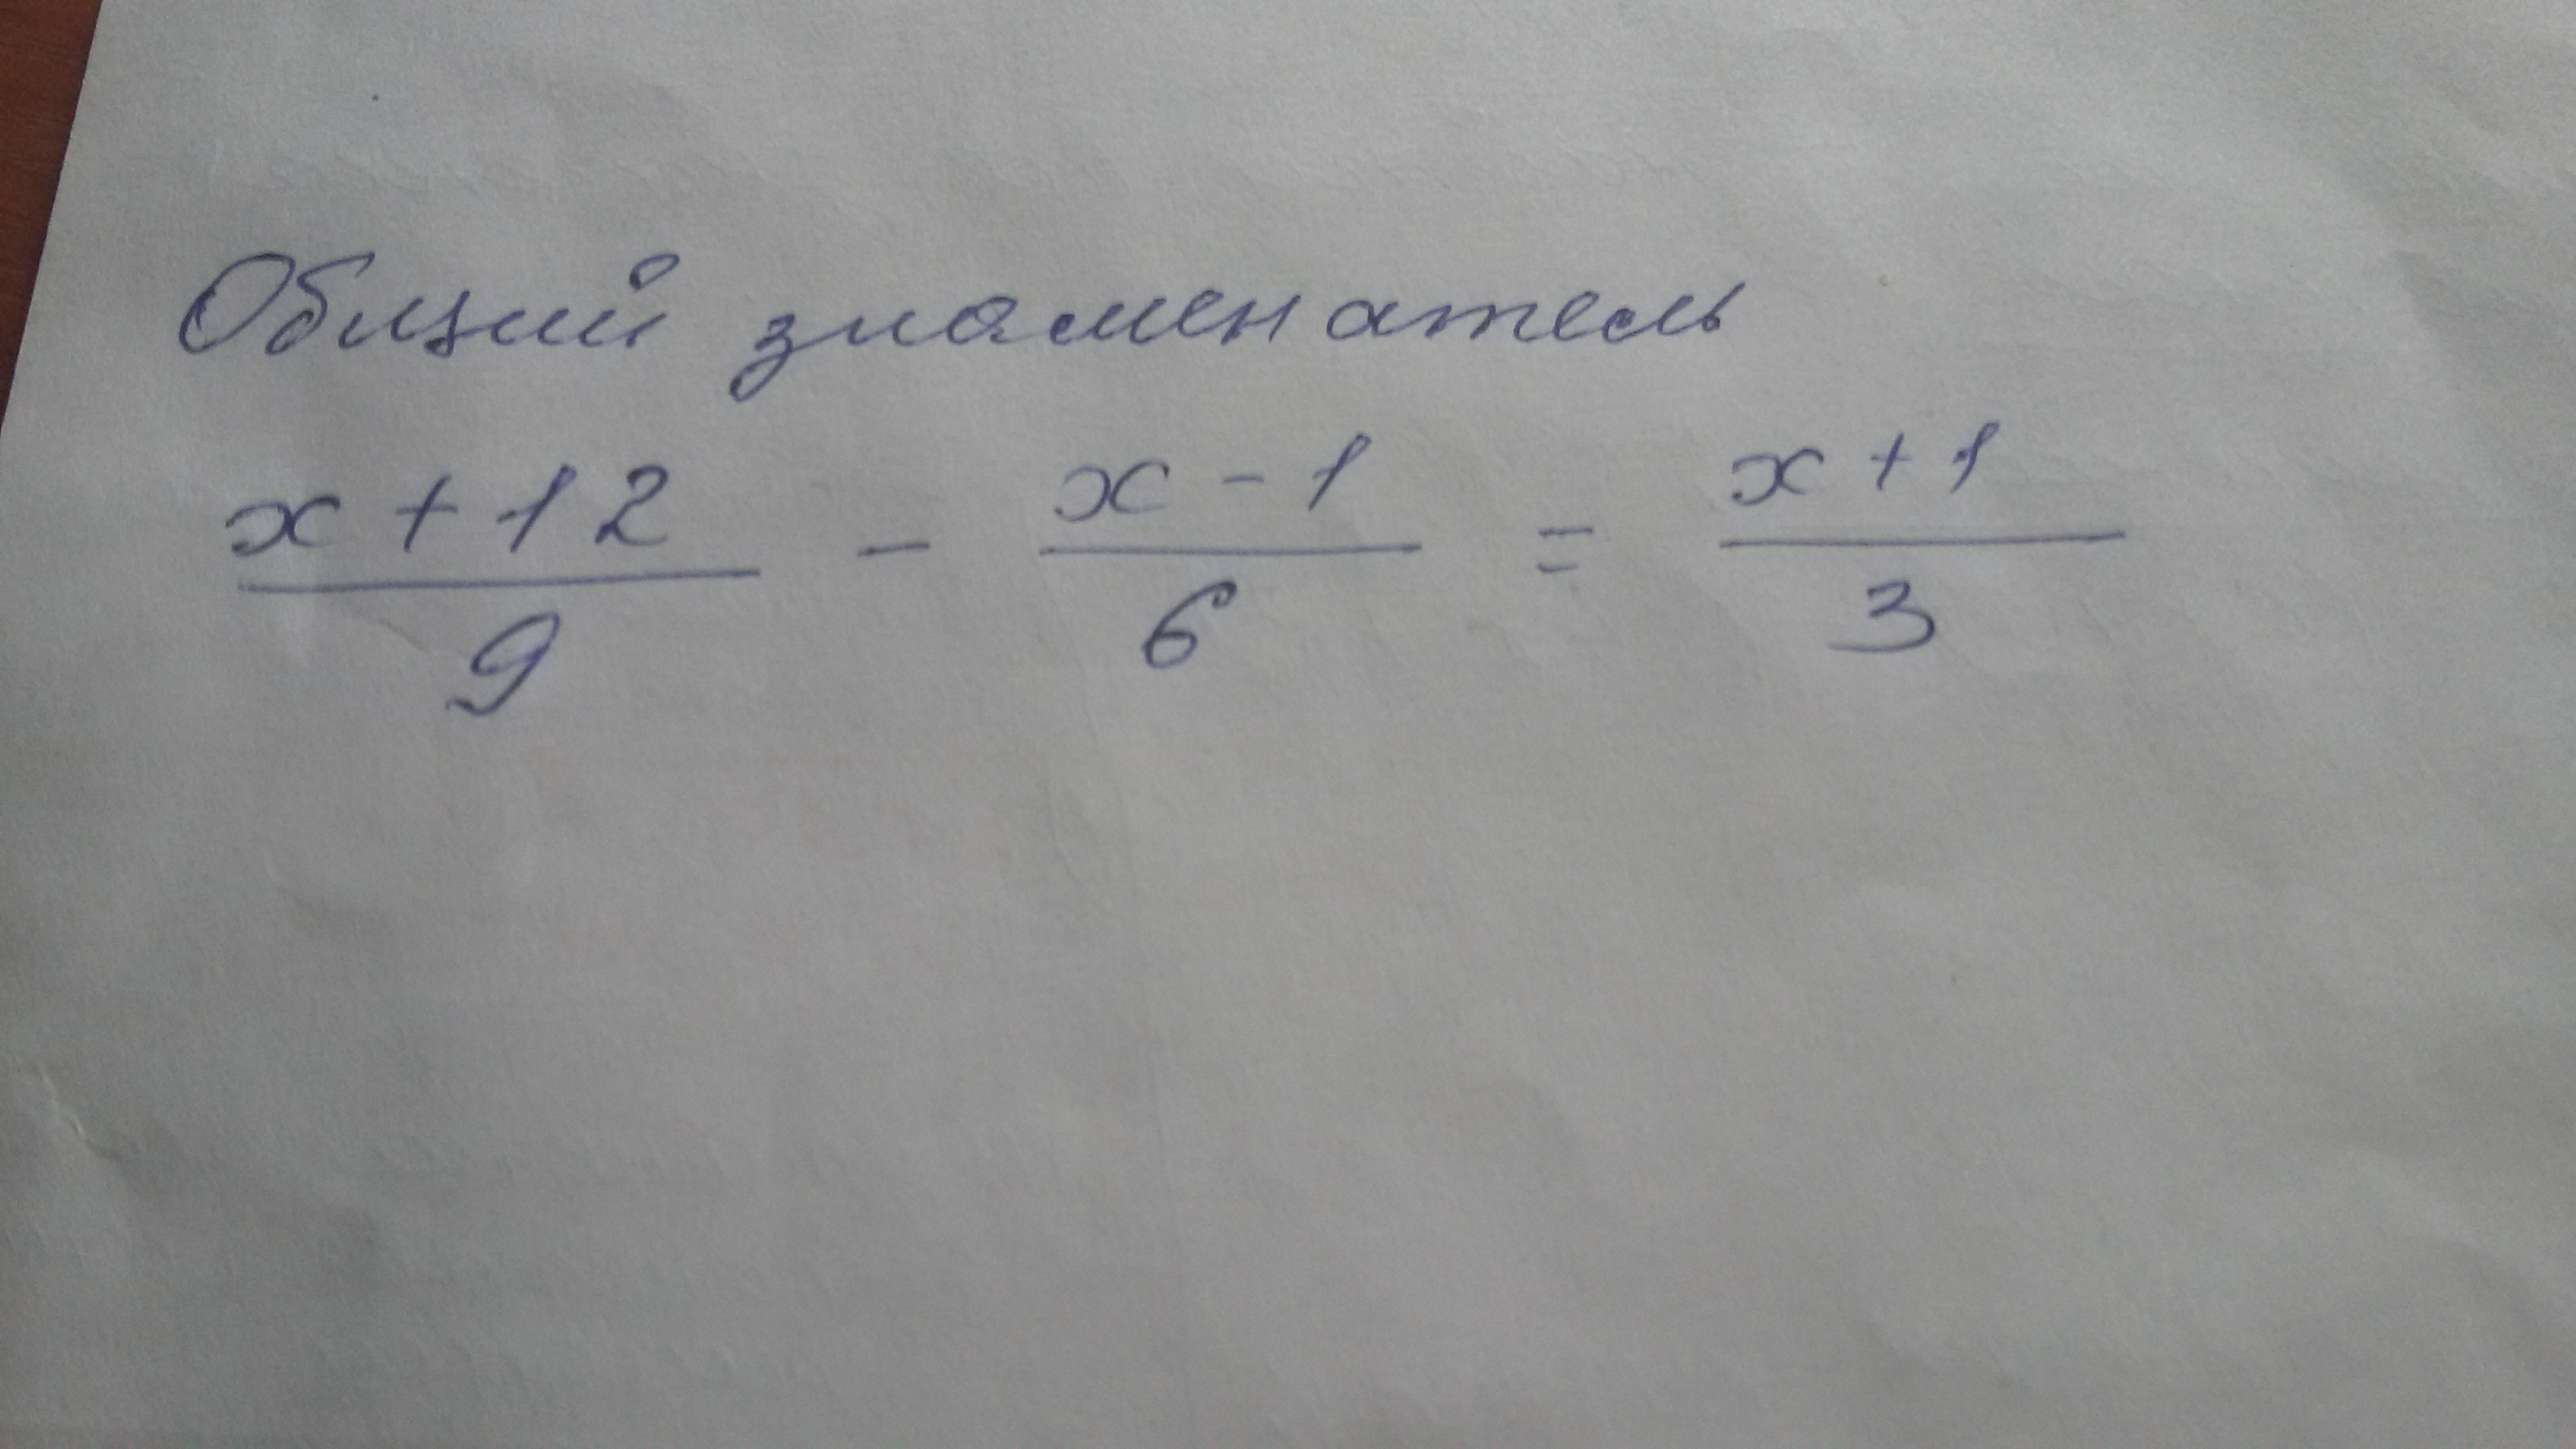 Общий знаменатель
x + 12 / 9 - x - 1 / 6 = x + 1 / 3